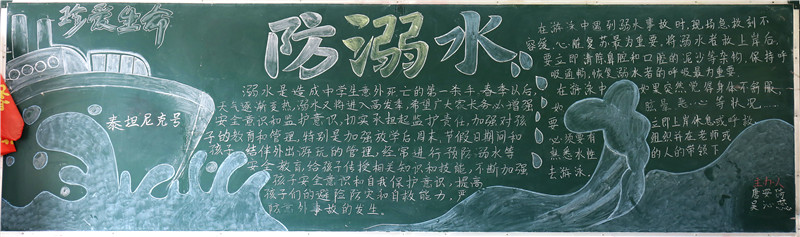 珍爱生命
防溺水
泰坦尼克号
溺水是造成中学生意外死亡的第一杀手,春季以后,
天气逐渐变热,溺水又将进入高发季,希望广大家长务必增强
安全意识和监护意识,切实承担起监护责任,加强对孩
子的教育和管理,特别是加强放学后、周末、节假日期间和
孩子结伴外出游玩的管理,经常进行预防溺水等
安全教育,给孩子传授相关知识和技能,不断加强
孩子安全意识和自我保护意识,提高
孩子们的避险防灾和自救能力,严
防意外事故的发生。
在游泳中遇到溺水事故时,现场急救刻不
容缓,心脏复苏最为重要,将溺水者救上岸后,
要立即清除鼻腔和口腔的泥沙等杂物,保持呼
吸通畅,恢复溺水者的呼吸最为重要。
在游泳中如果突然觉得身体不舒服,
如 眩晕恶心等状况,
要立即上岸休息或呼救,
必须要有组织并在老师或
熟悉水性的人的带领下
去游泳。
主办人
唐安
吴沁